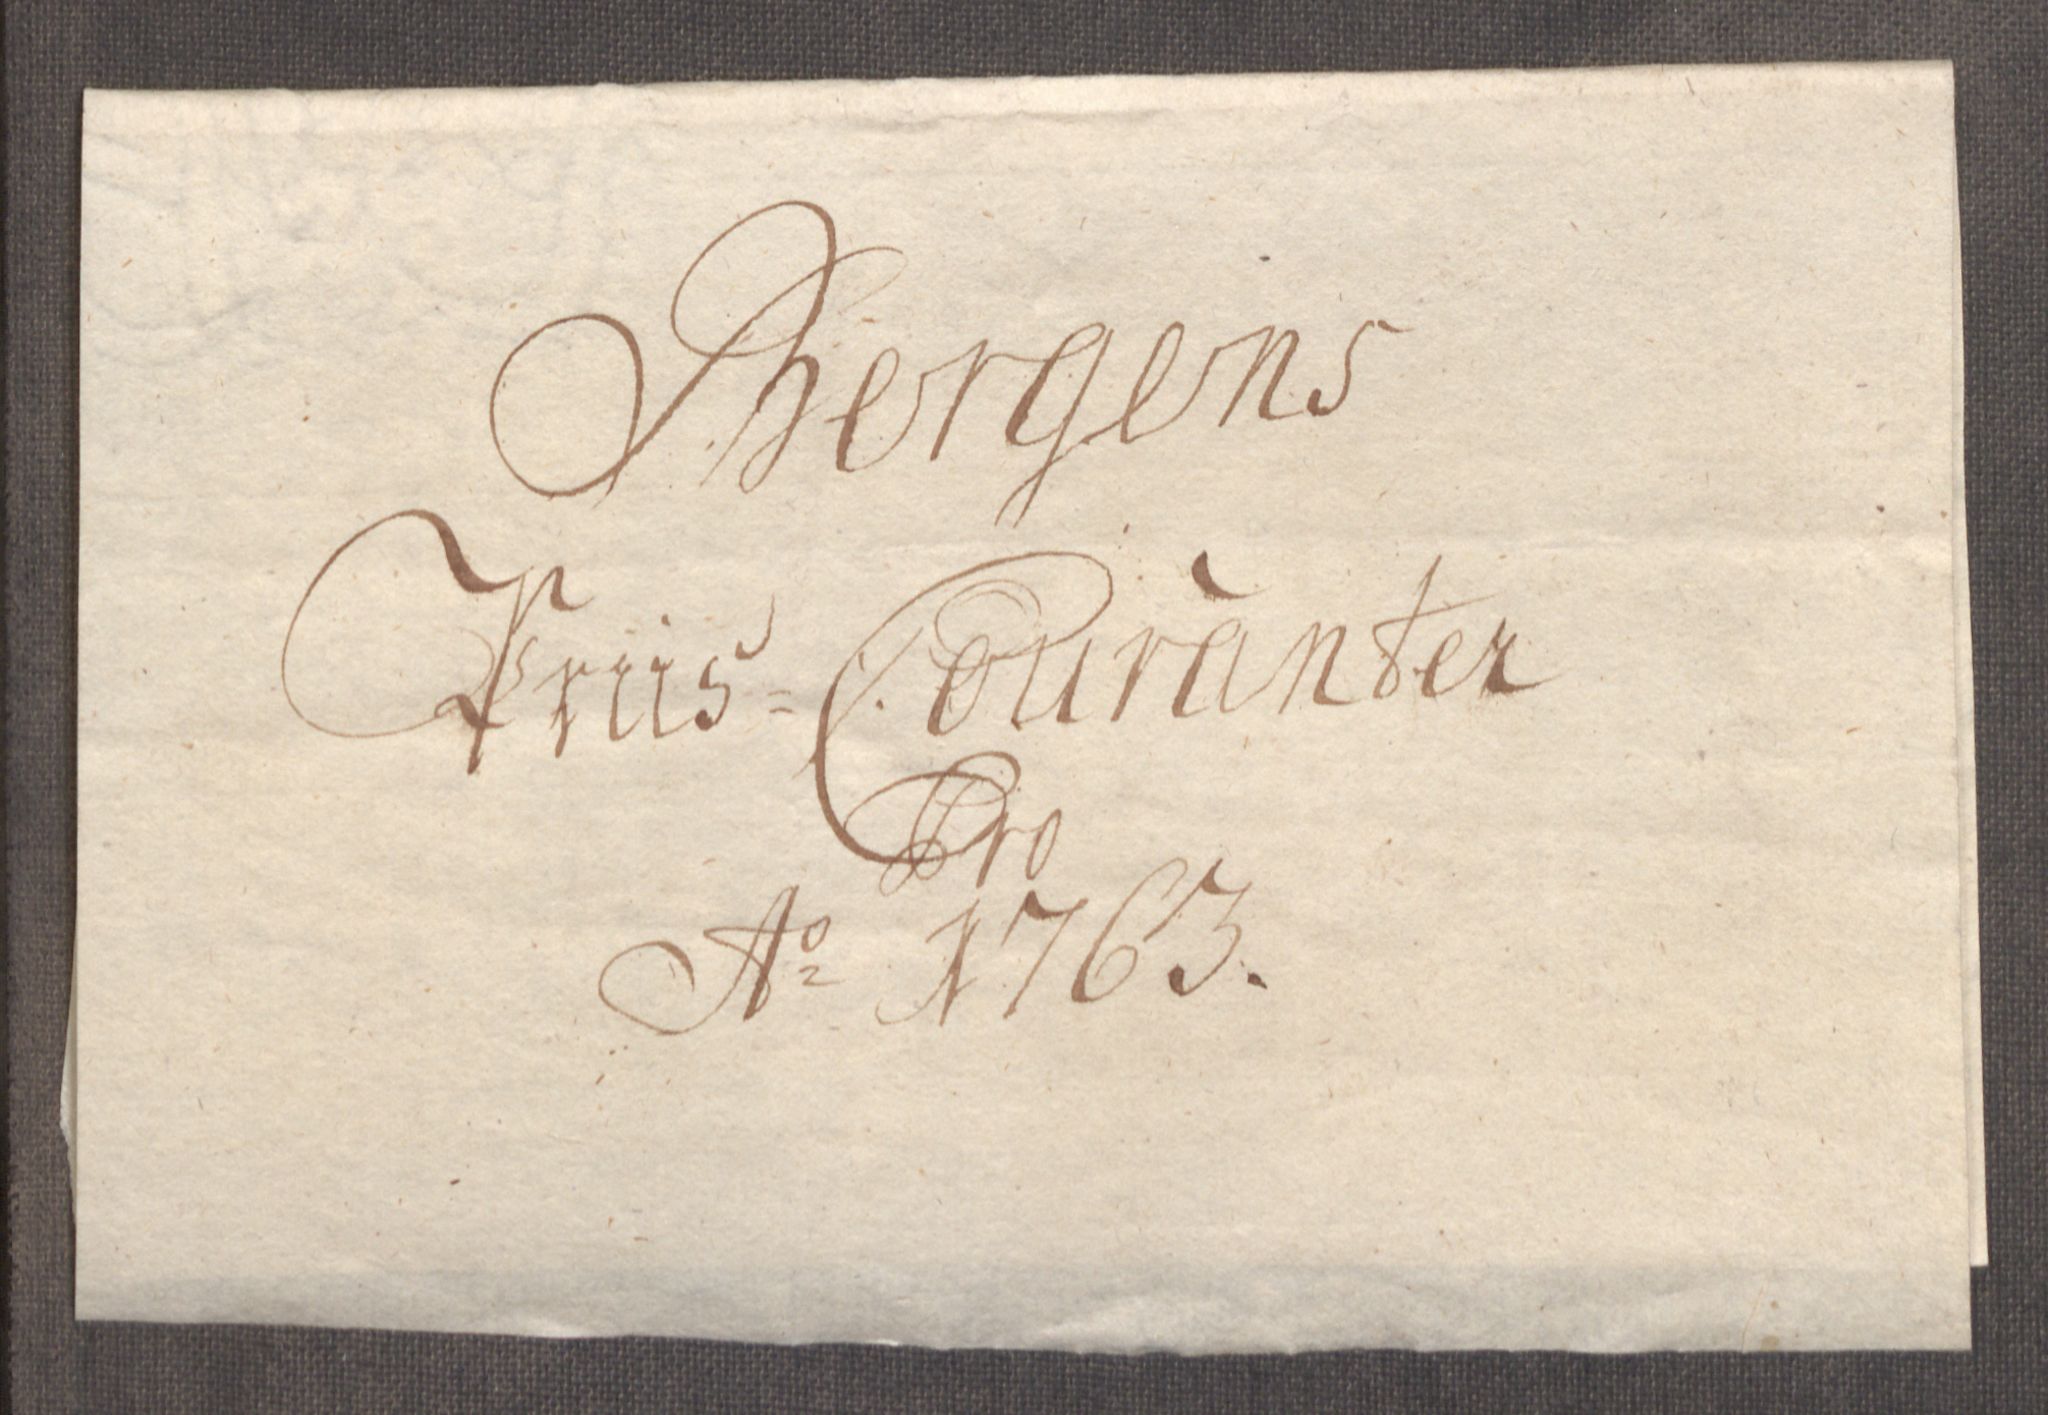 Bergens
Priis-Couranter
Pro
Aº 1763.